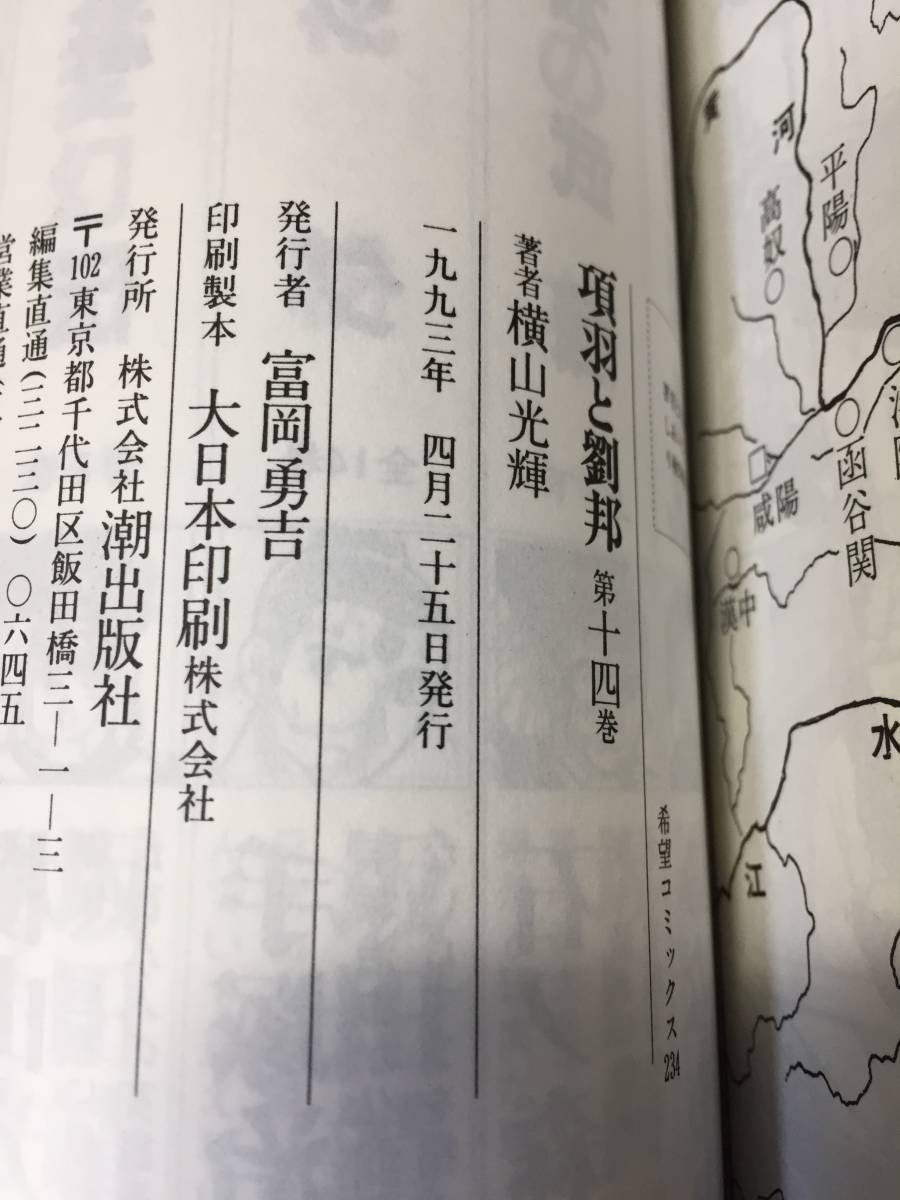 希望コミックス 234
項羽と劉邦 第十四巻
著者 横山光輝
一九九三年 四月二十五日発行
発行者 富岡勇吉
印刷製本 大日本印刷株式会社
発行所 株式会社 潮出版社
〒102 東京都千代田区飯田橋三―一―三
編集直通(三二三〇)〇六四五
営業直通
河
平陽
高奴
函谷関
咸陽
漢中
水
江